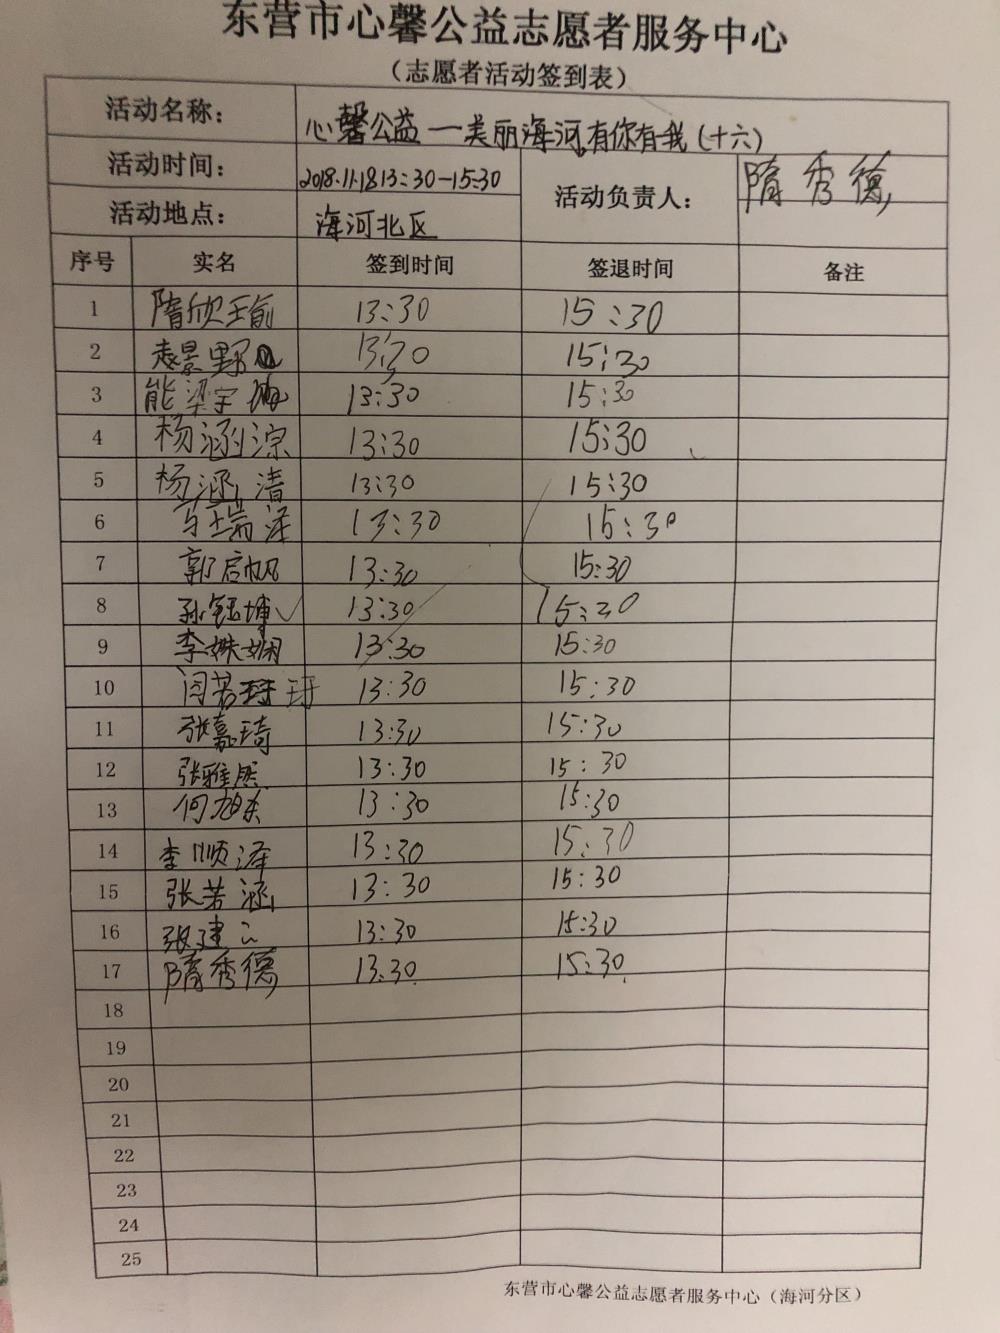 东营市心馨公益志愿者服务中心
（志愿者活动签到表）
活动名称： 心馨公益一美丽海河,有你有我(十六)
活动时间： 2018.11.18 13:30-15:30 活动负责人： 隋秀德
活动地点： 海河北区
序号 实名 签到时间 签退时间 备注
1 隋欣瑜 13:30 15:30
2 景野 13:30 15:30
3 能梁宇 13:30 15:30
4 杨涵淙 13:30 15:30
5 杨涵清 13:30 15:30
6 马瑞泽 13:30 15:30
7 郭启帆 13:30 15:30
8 孙钰博 13:30 15:30
9 李姝娴 13:30 15:30
10 闫若玗 13:30 15:30
11 张嘉琦 13:30 15:30
12 张雅然 13:30 15:30
13 何旭东 13:30 15:30
14 李顺泽 13:30 15:30
15 张若涵 13:30 15:30
16 张建云 13:30 15:30
17 隋秀德 13:30 15:30
18
19
20
21
22
23
24
25
东营市心馨公益志愿者服务中心（海河分区）